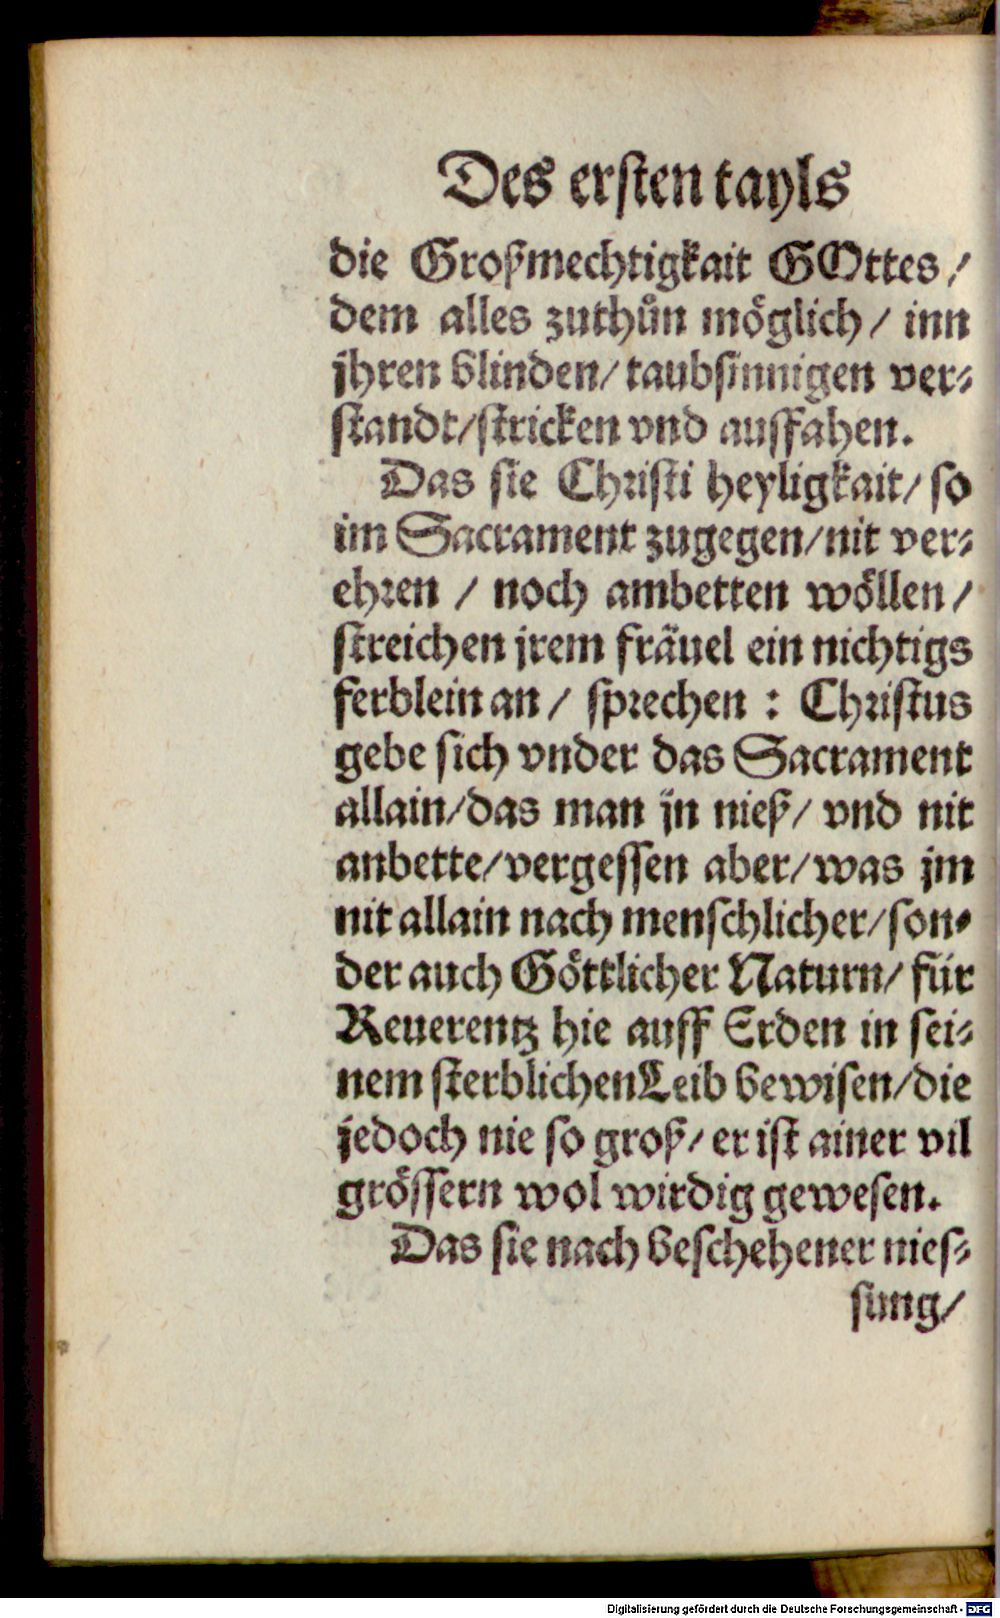 Des ersten tayls
die Großmechtigkait GOttes/
dem alles zuthůn möglich/ inn
jhren blinden/ taubsinnigen ver⸗
standt/stricken vnd auffahen.
Das sie Christi heyligkait/ so
im Sacrament zugegen/nit ver⸗
ehren / noch ambetten wöllen/
streichen jrem fräuel ein nichtigs
ferblein an/ sprechen : Christus
gebe sich vnder das Sacrament
allain/das man jn nieß/ vnd nit
anbette/vergessen aber/was jm
nit allain nach menschlicher/son⸗
der auch Göttlicher Naturn/ für
Reuerentz hie auff Erden in sei⸗
nem sterblichen Leib bewisen/die
jedoch nie so groß/ er ist ainer vil
grössern wol wirdig gewesen.
Das sie nach beschehener nies⸗
sung/
Digitalisierung gefördert durch die Deutsche Forschungsgemeinschaft - DFG